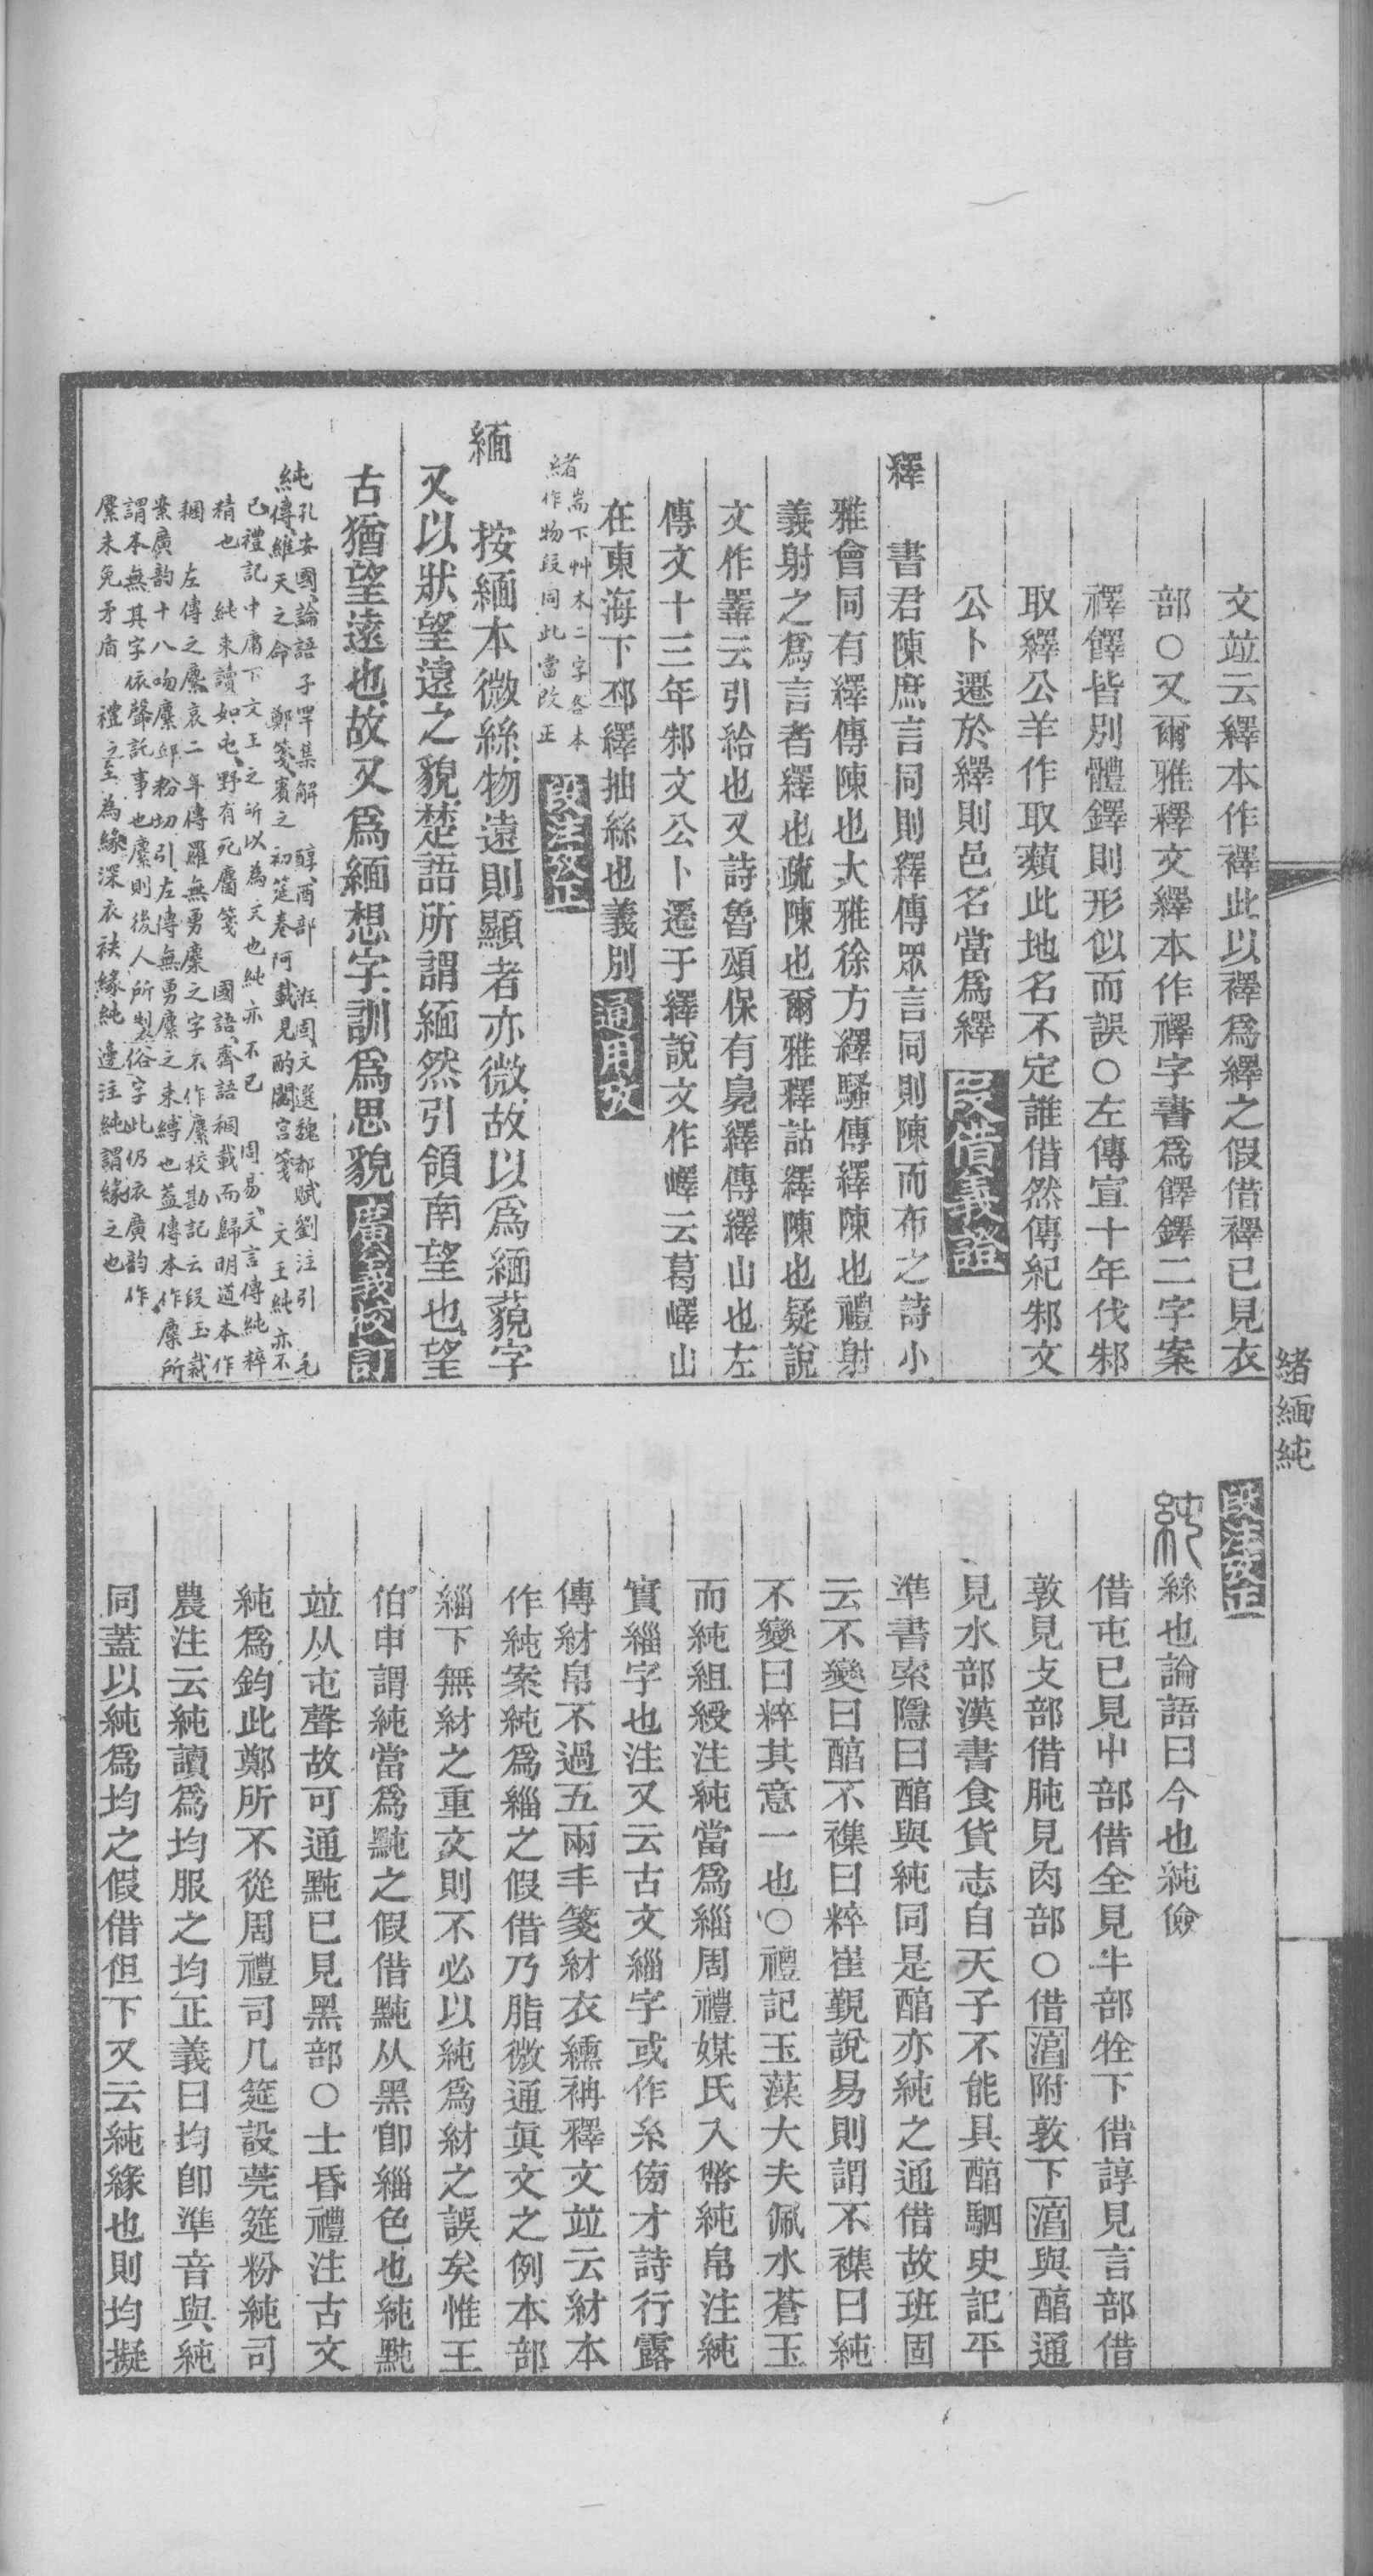 緒緬純
文竝云繹本作襗此以襗爲繹之假借襗已見衣
部○又爾雅釋文繹本作襗字書爲𩎟鐸二字案
襗𩎟皆別體鐸則形似而誤○左傳宣十年伐邾
取繹公羊作取蘱此地名不定誰借然傳紀邾文
公卜遷於繹則邑名當爲繹 段借義證
繹 書君陳庶言同則繹傳眾言同則陳而布之詩小
雅會同有繹傳陳也大雅徐方繹騷傳繹陳也禮射
義射之爲言者繹也疏陳也爾雅釋詁繹陳也疑說
文作斁云引給也又詩魯頌保有鳧繹傳繹山也左
傳文十三年邾文公卜遷于繹說文作嶧云葛嶧山
在東海下邳繹抽絲也義別 通用攷
緒 耑下艸木二字各本
作物段同此當改正 段注校正
緬 按緬本微絲物遠則顯者亦微故以爲緬藐字
又以狀望遠之貌楚語所謂緬然引領南望也望
古猶望遠也故又爲緬想字訓爲思貌 廣義校訂
純 孔安國論語子罕集解 醇酉部 班固文選魏都賦劉注引 毛
傳維天之命 鄭箋賓之初筵卷阿載見酌閟宮箋 文王純亦不
已禮記中庸下文王之所以為文也純亦不已 周易文言傳純粹
精也 純束讀如屯野有死麕箋 國語齊語稛載而歸明道本作
稛 左傳之麇哀二年傳羅無勇麇之字不作麇校勘記云段玉裁
案廣韵十八吻麇邱粉切引左傳無勇麇之束縛也蓋傳本作麇所
謂本無其字依聲託事也麇則後人所製俗字此仍依廣韵作
麇未免矛盾 禮之至為緣深衣袂緣純邊注純謂緣之也
段注攷正
純 絲也論語曰今也純儉
借屯已見屮部借全見牛部牷下借諄見言部借
敦見攴部借肫見肉部○借湻附敦下湻與醇通
見水部漢書食貨志自天子不能具醇駟史記平
準書索隱曰醇與純同是醇亦純之通借故班固
云不變曰醇不襍曰粹崔覲說易則謂不襍曰純
不變曰粹其意一也○禮記玉藻大夫佩水蒼玉
而純組綬注純當爲緇周禮媒氏入幣純帛注純
實緇字也注又云古文緇字或作糸傍才詩行露
傳紂帛不過五兩丰箋紂衣纁袡釋文竝云紂本
作純案純爲緇之假借乃脂微通眞文之例本部
緇下無紂之重文則不必以純爲紂之誤矣惟王
伯申謂純當爲黗之假借黗从黑卽緇色也純黗
竝从屯聲故可通黗已見黑部○士昏禮注古文
純爲鈞此鄭所不從周禮司几筵設莞筵粉純司
農注云純讀爲均服之均正義曰均卽準音與純
同蓋以純爲均之假借但下又云純緣也則均擬